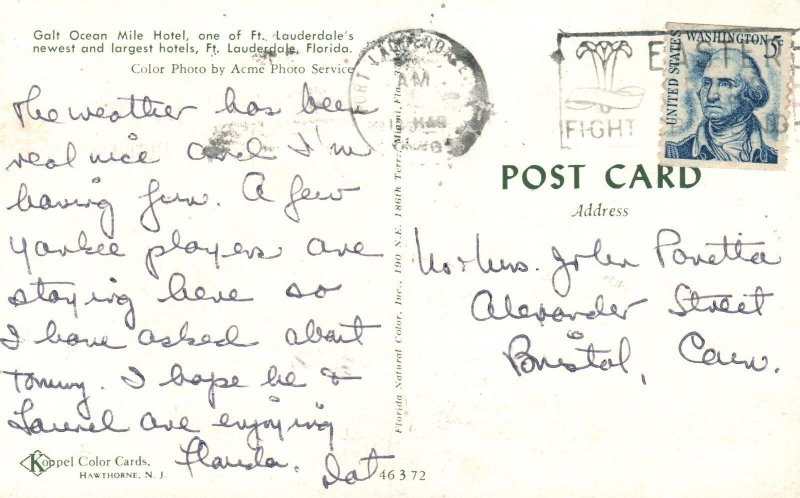 Galt Ocean Mile Hotel, one of Ft. Lauderdale's
newest and largest hotels, Ft. Lauderdale, Florida.
Color Photo by Acme Photo Service
The weather has been
real nice and I'm
having fun. A few
Yankee players are
staying here so
I have asked about
Tommy. I hope he &
Laurel are enjoying
Florida. Dot
Koppel Color Cards.
HAWTHORNE, N. J.
46372
Florida Natural Color, Inc., 190 N.E. 186th Terr., Miami, Fla.
FORT LAUDERDALE
AM
MAR
EASTER
FIGHT
UNITED STATES
WASHINGTON 5c
POST CARD
Address
Mr & Mrs. John Poretta
Alexander Street
Bristol, Conn.